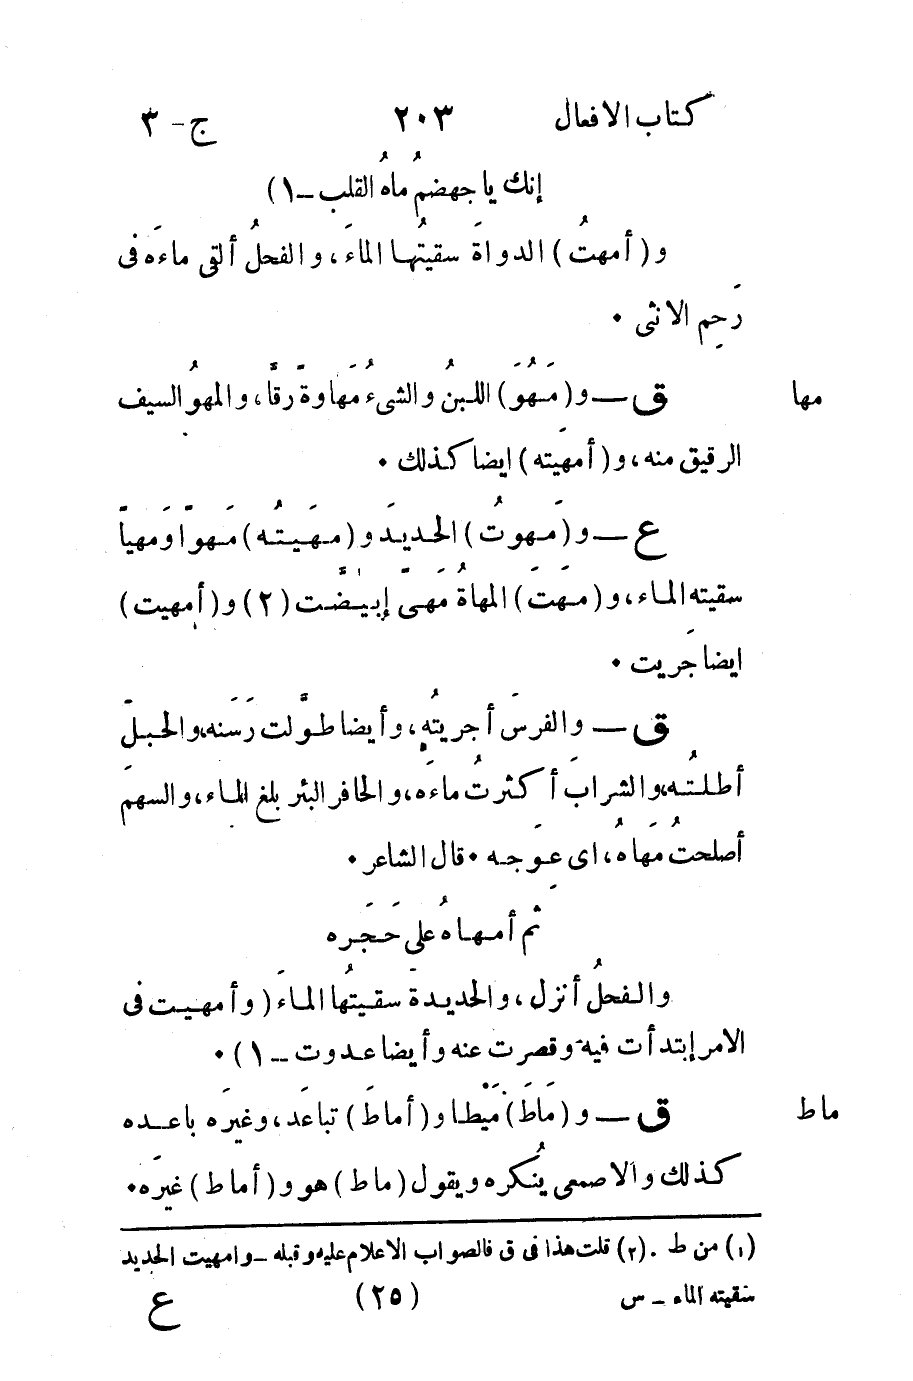 كتاب الافعال ٢٠٣ ج - ٣
إنك يا جهضمُ ماهُ القلب ـ ١)
و (أمهتُ) الدواةَ سقيتُها الماءَ، والفحلُ ألقى ماءَه فى
رَحِم الانثى •
مها ق ـــ و (مَهُوَ) اللبنُ والشىءُ مَهاوةً رقّ، والمهوُ السيف
الرقيق منه، و (أمهَيته) ايضا كذلك •
ع ـــ و (مَهوتُ) الحديدَ و (مهَيتُه) مَهواً ومَهياً
سقيته الماء، و (مَهَتِ) المهاةُ مَهىً إبيضّت (٢) و (أمهيت)
ايضا جَريت •
ق ـــ والفرسَ أجريتُه، وأيضا طوّلت رَسَنه، والحبلَ
أطلتُه، والشرابَ أكثرتُ ماءَه، والحافرالبئر بلغ الماء، والسهمَ
أصلحتُ مُهَاهُ، اى عِوَجه • قال الشاعر •
ثم أمهاهُ على حَجَره
والفحلُ أنزل، والحديدةَ سقيتُها الماءَ (وأمهيت فى
الامر إبتدأت فيه وقصرت عنه وأيضا عدوت ـ ١) •
ماط ق ـــ و (مَاطَ) مَيْطا و (أماطَ) تباعَد، وغيرَه باعده
كذلك والاصمعى يُنكره ويقول (ماط) هو و (أماط) غيرَه •
(١) من ط . (٢) قلت هذا فى ق فالصواب الاعلام عليه وقبله ـ وامهيت الحديد
سقيته الماء ـ س (٢٥) ع